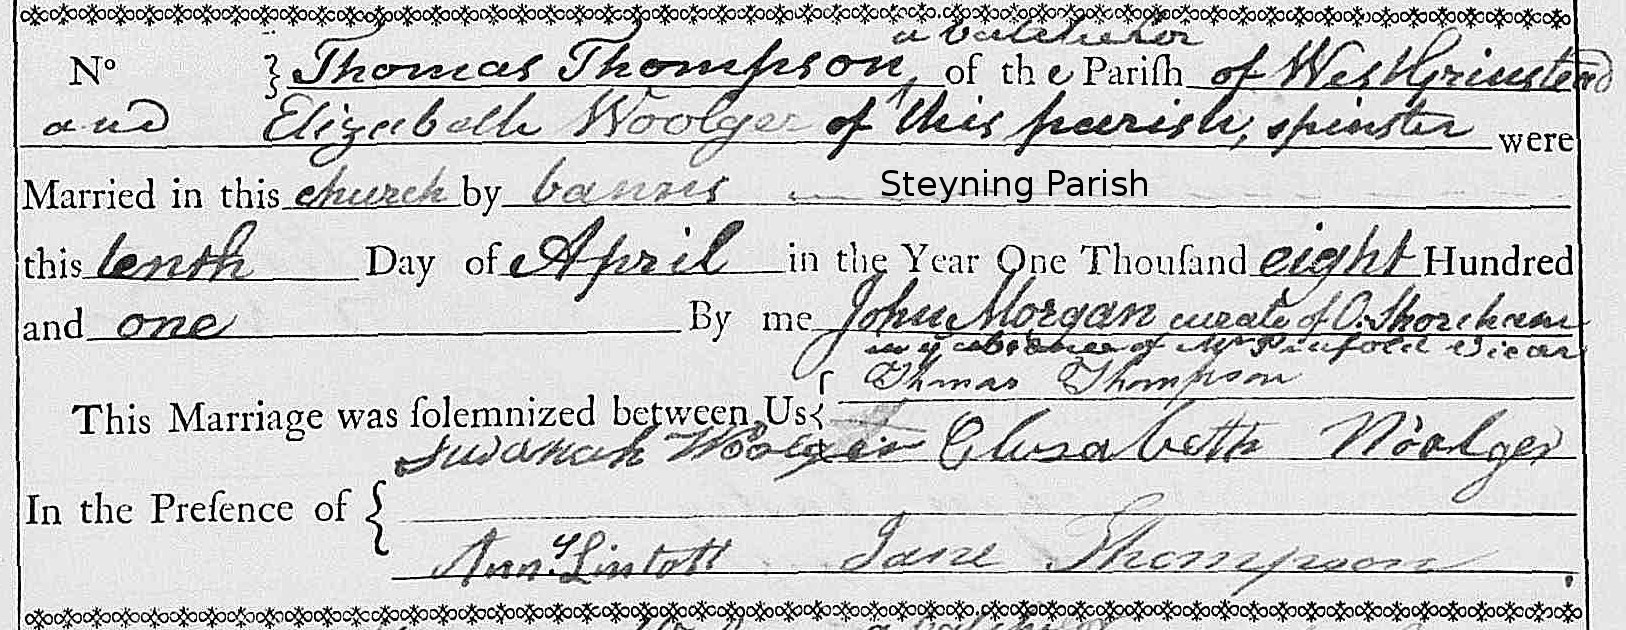 a batchelor
No } Thomas Thompson, of the Pariſh of West Grinstead
and Elizabeth Woolger of this parish, spinster were
Married in this church by banns Steyning Parish
this tenth Day of April in the Year One Thouſand eight Hundred
and one By me John Morgan curate of O. Shoreham
in ye absence of Mr Penfold Vicar
Thmas Thompson
This Marriage was ſolemnized between Us {
Susanah Woolger Elusabeth Woolger
In the Preſence of {
Ann Lintott Jane Thompson